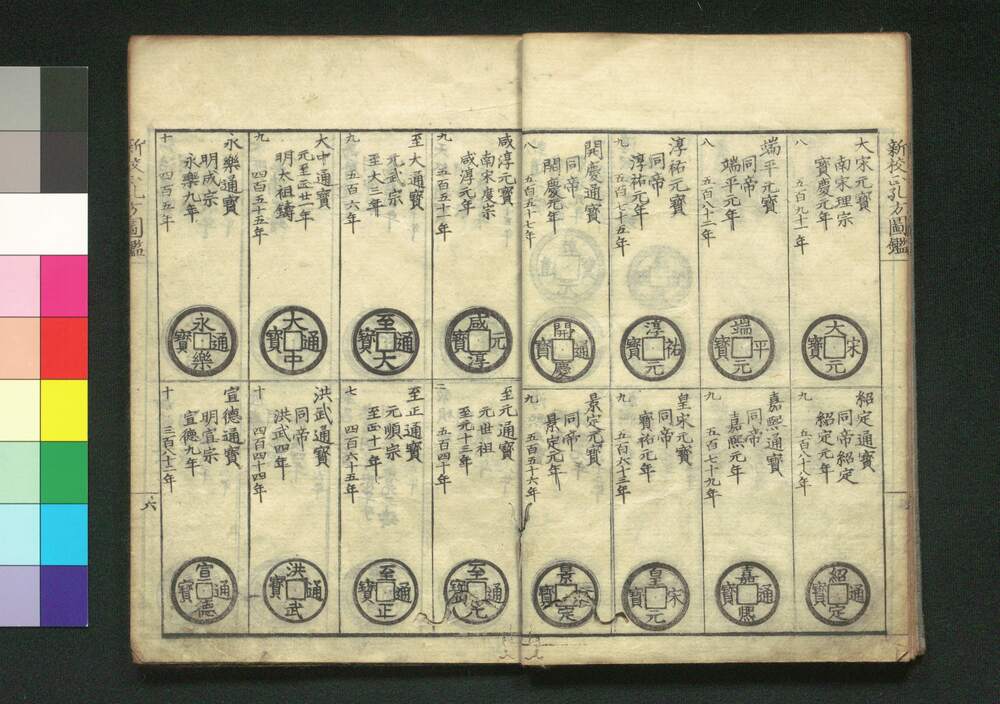 新校正孔方圖鑑
大宋元寶
南宋理宗
寶慶元年
八 五百九十一年
大宋元寶
端平元寶
同帝
端平元年
八 五百八十二年
端平元寶
淳祐元寶
同帝
淳祐元年
九 五百七十五年
淳祐元寶
開慶通寶
同帝
開慶元年
八 五百五十七年
開慶通寶
紹定通寶
同帝紹定
紹定元年
九 五百八十八年
紹定通寶
嘉熙通寶
同帝
嘉熙元年
九 五百七十九年
嘉熙通寶
皇宋元寶
同帝
寶祐元年
九 五百六十三年
皇宋元寶
景定元寶
同帝
景定元年
九 五百五十六年
景定元寶
咸淳元寶
南宋度宗
咸淳元年
九 五百五十一年
咸淳元寶
至大通寶
元武宗
至大三年
九 五百六年
至大通寶
大中通寶
元至正廿一年
明太祖鋳
九 四百五十五年
大中通寶
永樂通寶
明成宗
永樂九年
十 四百五年
永樂通寶
至元通寶
元世祖
至元十三年
二 五百四十年
至元通寶
至正通寶
元順宗
至正十一年
七 四百六十五年
至正通寶
洪武通寶
同帝
洪武四年
十 四百四十四年
洪武通寶
宣德通寶
明宣宗
宣德九年
十 三百八十二年
宣德通寶
新校正孔方圖鑑
六